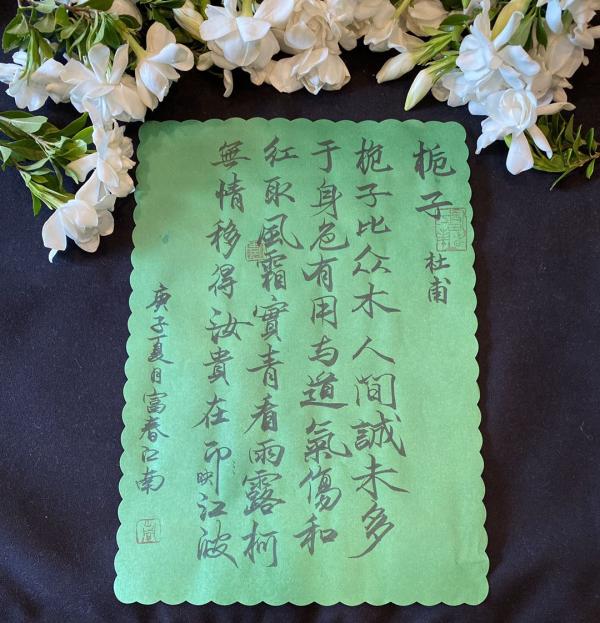 栀子
杜甫
栀子比众木人間誠未多
于身色有用与道氣傷和
红取風霜實青看雨露柯
無情移得汝貴在印映江波
庚子夏日富春江南